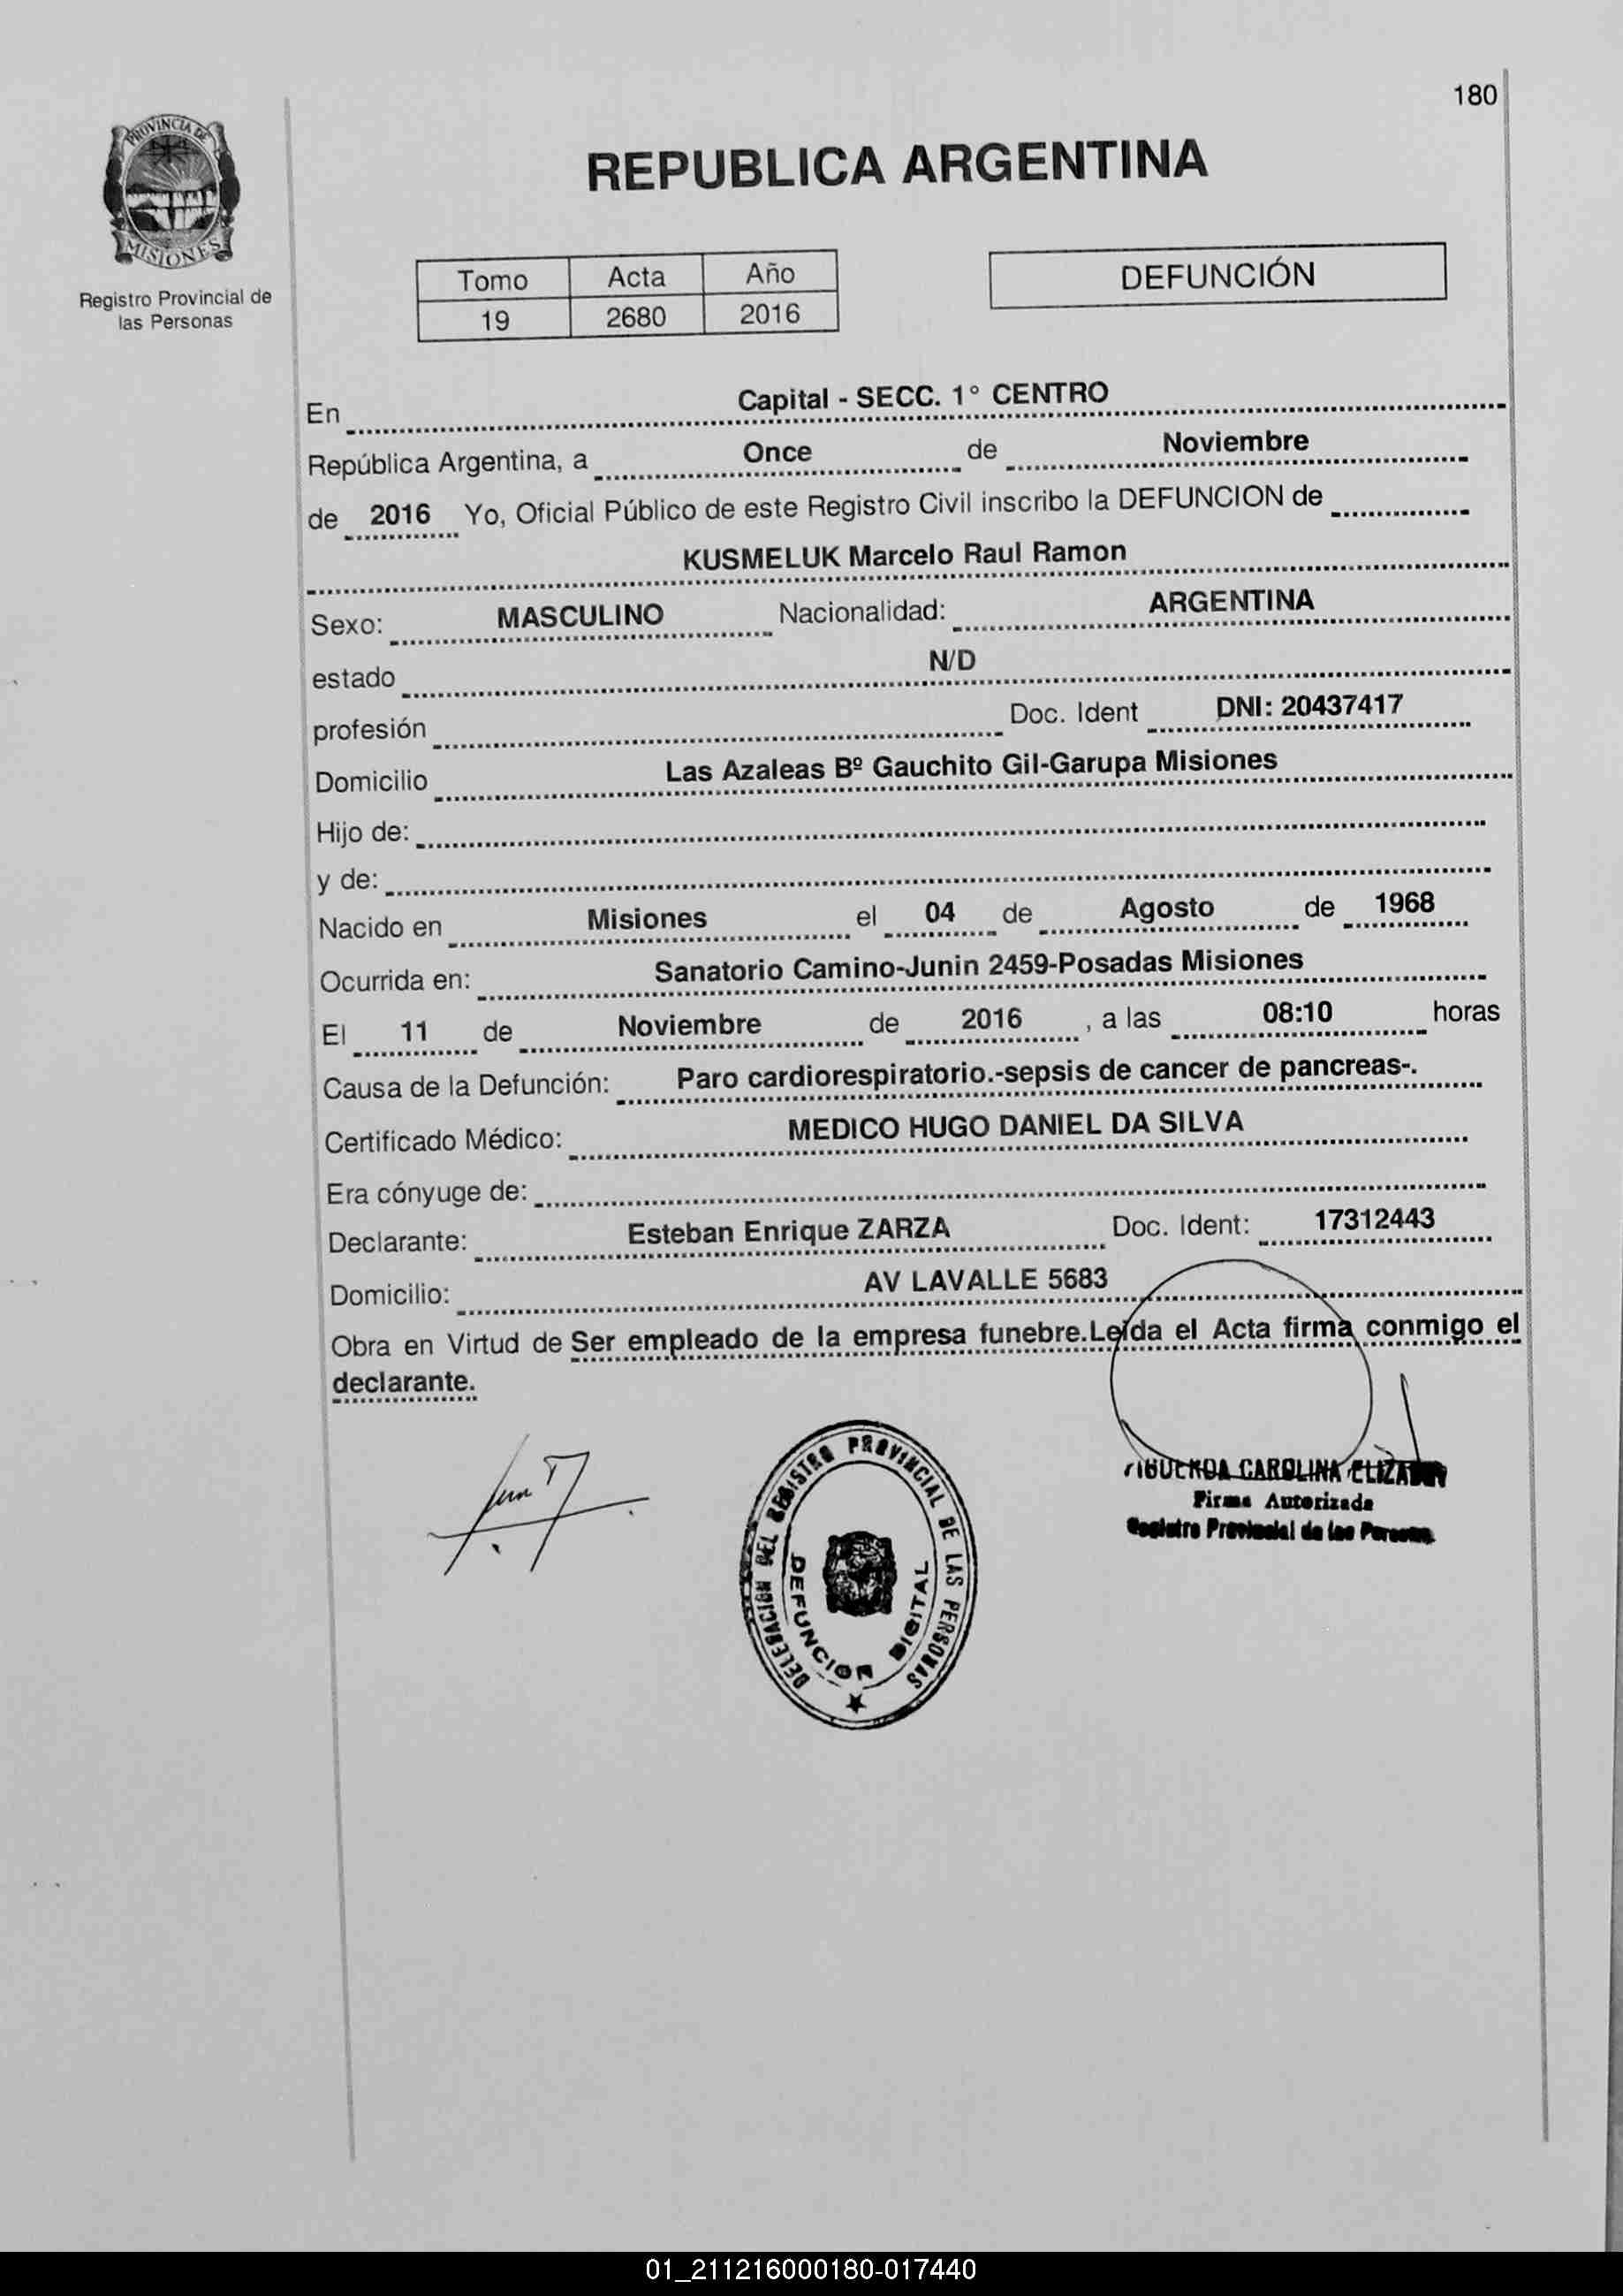 180
PROVINCIA DE
MISIONES
Registro Provincial de
las Personas
REPUBLICA ARGENTINA
Tomo Acta Año
19 2680 2016
DEFUNCIÓN
En Capital - SECC. 1° CENTRO
República Argentina, a Once de Noviembre
de 2016 Yo, Oficial Público de este Registro Civil inscribo la DEFUNCION de
KUSMELUK Marcelo Raul Ramon
Sexo: MASCULINO Nacionalidad: ARGENTINA
estado N/D
profesión Doc. Ident DNI: 20437417
Domicilio Las Azaleas Bº Gauchito Gil-Garupa Misiones
Hijo de:
y de:
Nacido en Misiones el 04 de Agosto de 1968
Ocurrida en: Sanatorio Camino-Junin 2459-Posadas Misiones
El 11 de Noviembre de 2016 , a las 08:10 horas
Causa de la Defunción: Paro cardiorespiratorio.-sepsis de cancer de pancreas-.
Certificado Médico: MEDICO HUGO DANIEL DA SILVA
Era cónyuge de:
Declarante: Esteban Enrique ZARZA Doc. Ident: 17312443
Domicilio: AV LAVALLE 5683
Obra en Virtud de Ser empleado de la empresa funebre.Leída el Acta firma conmigo el
declarante.
DELEGACION DEL REGISTRO PROVINCIAL DE LAS PERSONAS
DEFUNCION DIGITAL
CAROLINA
Firma Autorizada
Registro Provincial de las Personas
01_211216000180-017440